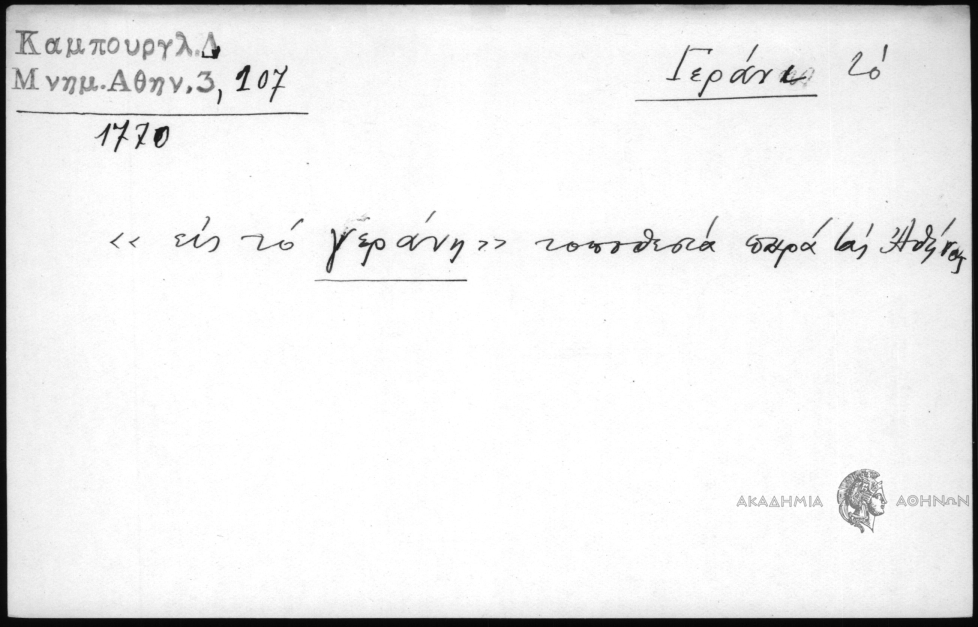 Καμπουργλ.Δ
Μνημ.Αθην.3, 107
1770
Γεράνι τό
« εἰς τό γεράνη » τοποθεσιά παρά τάς Ἀθήνας
ΑΚΑΔΗΜΙΑ ΑΘΗΝΩΝ